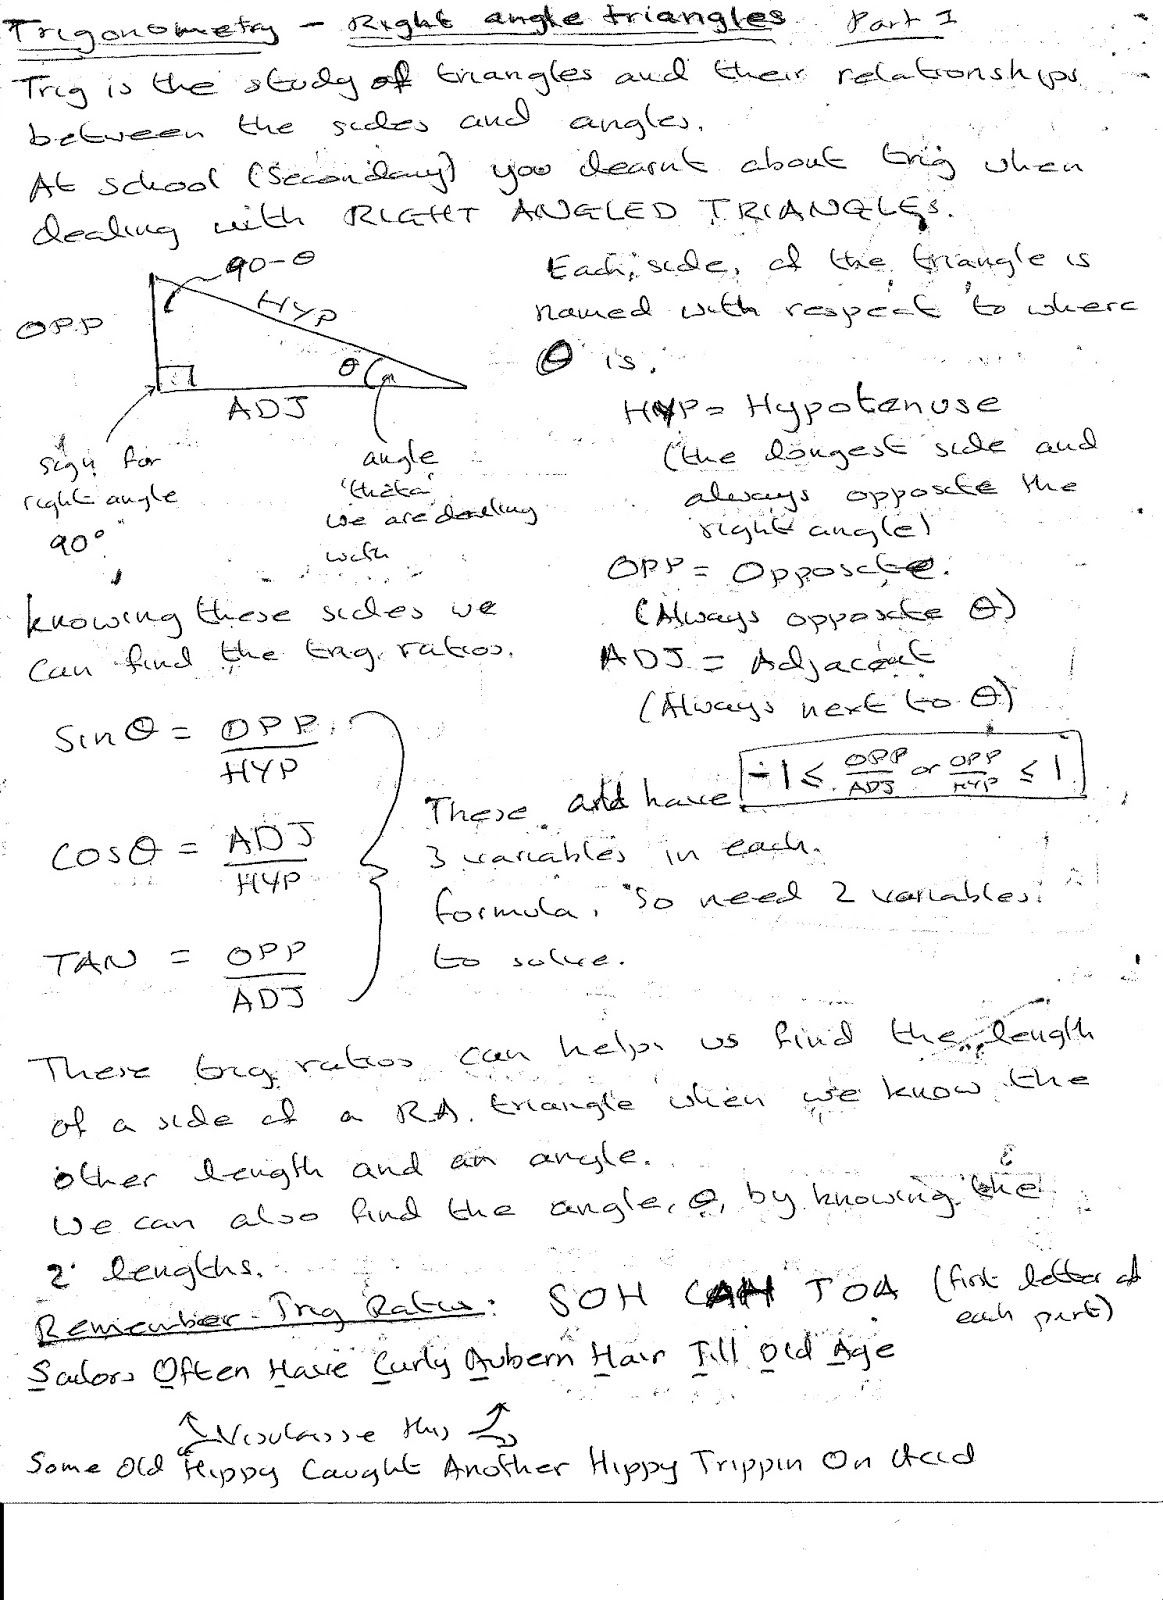 Trigonometry - Right angle triangles Part 1
Trig is the study of triangles and their relationships
between the sides and angles.
At school (Secondary) you learnt about trig when
dealing with RIGHT ANGLED TRIANGLES.
90-θ
HYP
OPP
θ
ADJ
sign for
right angle
90°
angle
'theta'
we are dealing
with
Each side, of the triangle is
named with respect to where
θ is.
HYP = Hypotenuse
(the longest side and
always opposite the
right angle)
OPP = Opposite.
(Always opposite θ)
ADJ = Adjacent
(Always next to θ)
knowing these sides we
can find the trig. ratios.
Sin θ = OPP/HYP
COS θ = ADJ/HYP
TAN = OPP/ADJ
-1 ≤ OPP/ADJ or OPP/HYP ≤ 1
These have
3 variables in each
formula. So need 2 variables
to solve.
These trig ratios can help us find the length
of a side of a RA. triangle when we know the
other length and an angle.
We can also find the angle, θ, by knowing the
2 lengths.
Remember - Trig Ratios: SOH CAH TOA (first letter of
each part)
Sailors Often Have Curly Aubern Hair Till Old Age
Visulaisse this
Some Old Hippy Caught Another Hippy Trippin On Acid